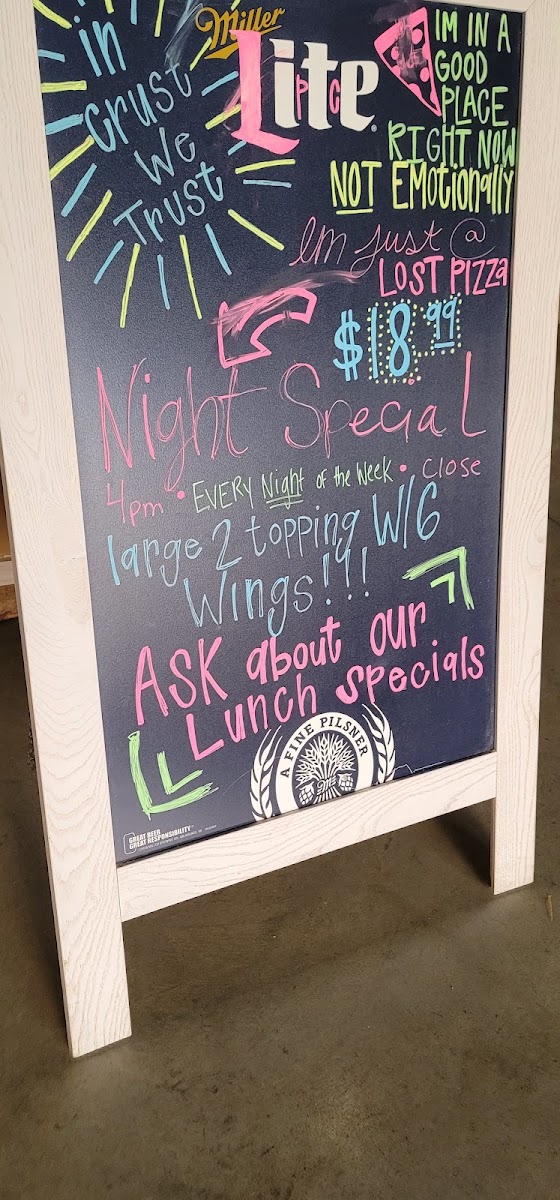 in
crust
We
Trust
Miller
Lite
PC
IM IN A
GOOD
PLACE
RIGHT NOW
NOT EMOtionally
Im just @
LOST PIZZa
$18.99
Night Special
4pm • EVERY Night of the Week • Close
large 2 topping W/6
Wings!!!
ASK about our
Lunch specials
A FINE PILSNER
GREAT BEER
GREAT RESPONSIBILITY